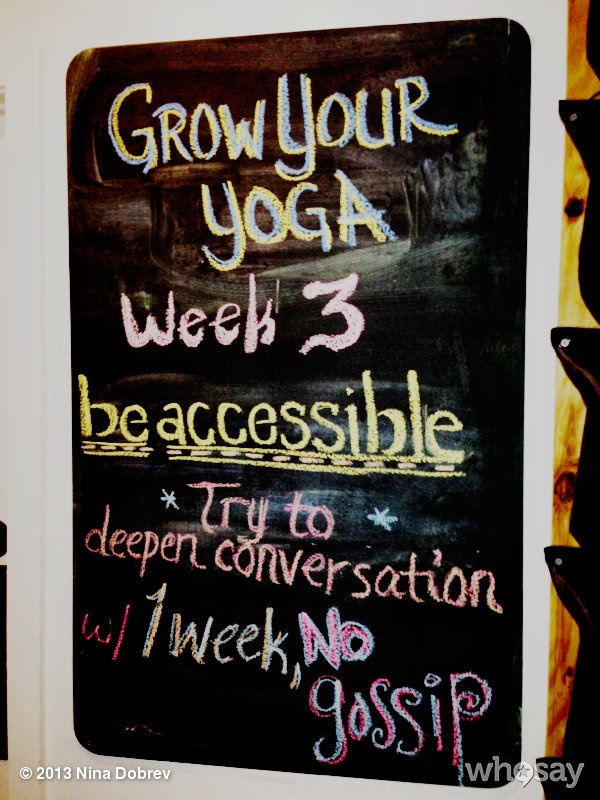 GROW YOUR
YOGA
Week 3
be accessible
* Try to *
deepen conversation
w/ 1 week, No
gossip
© 2013 Nina Dobrev
whosay